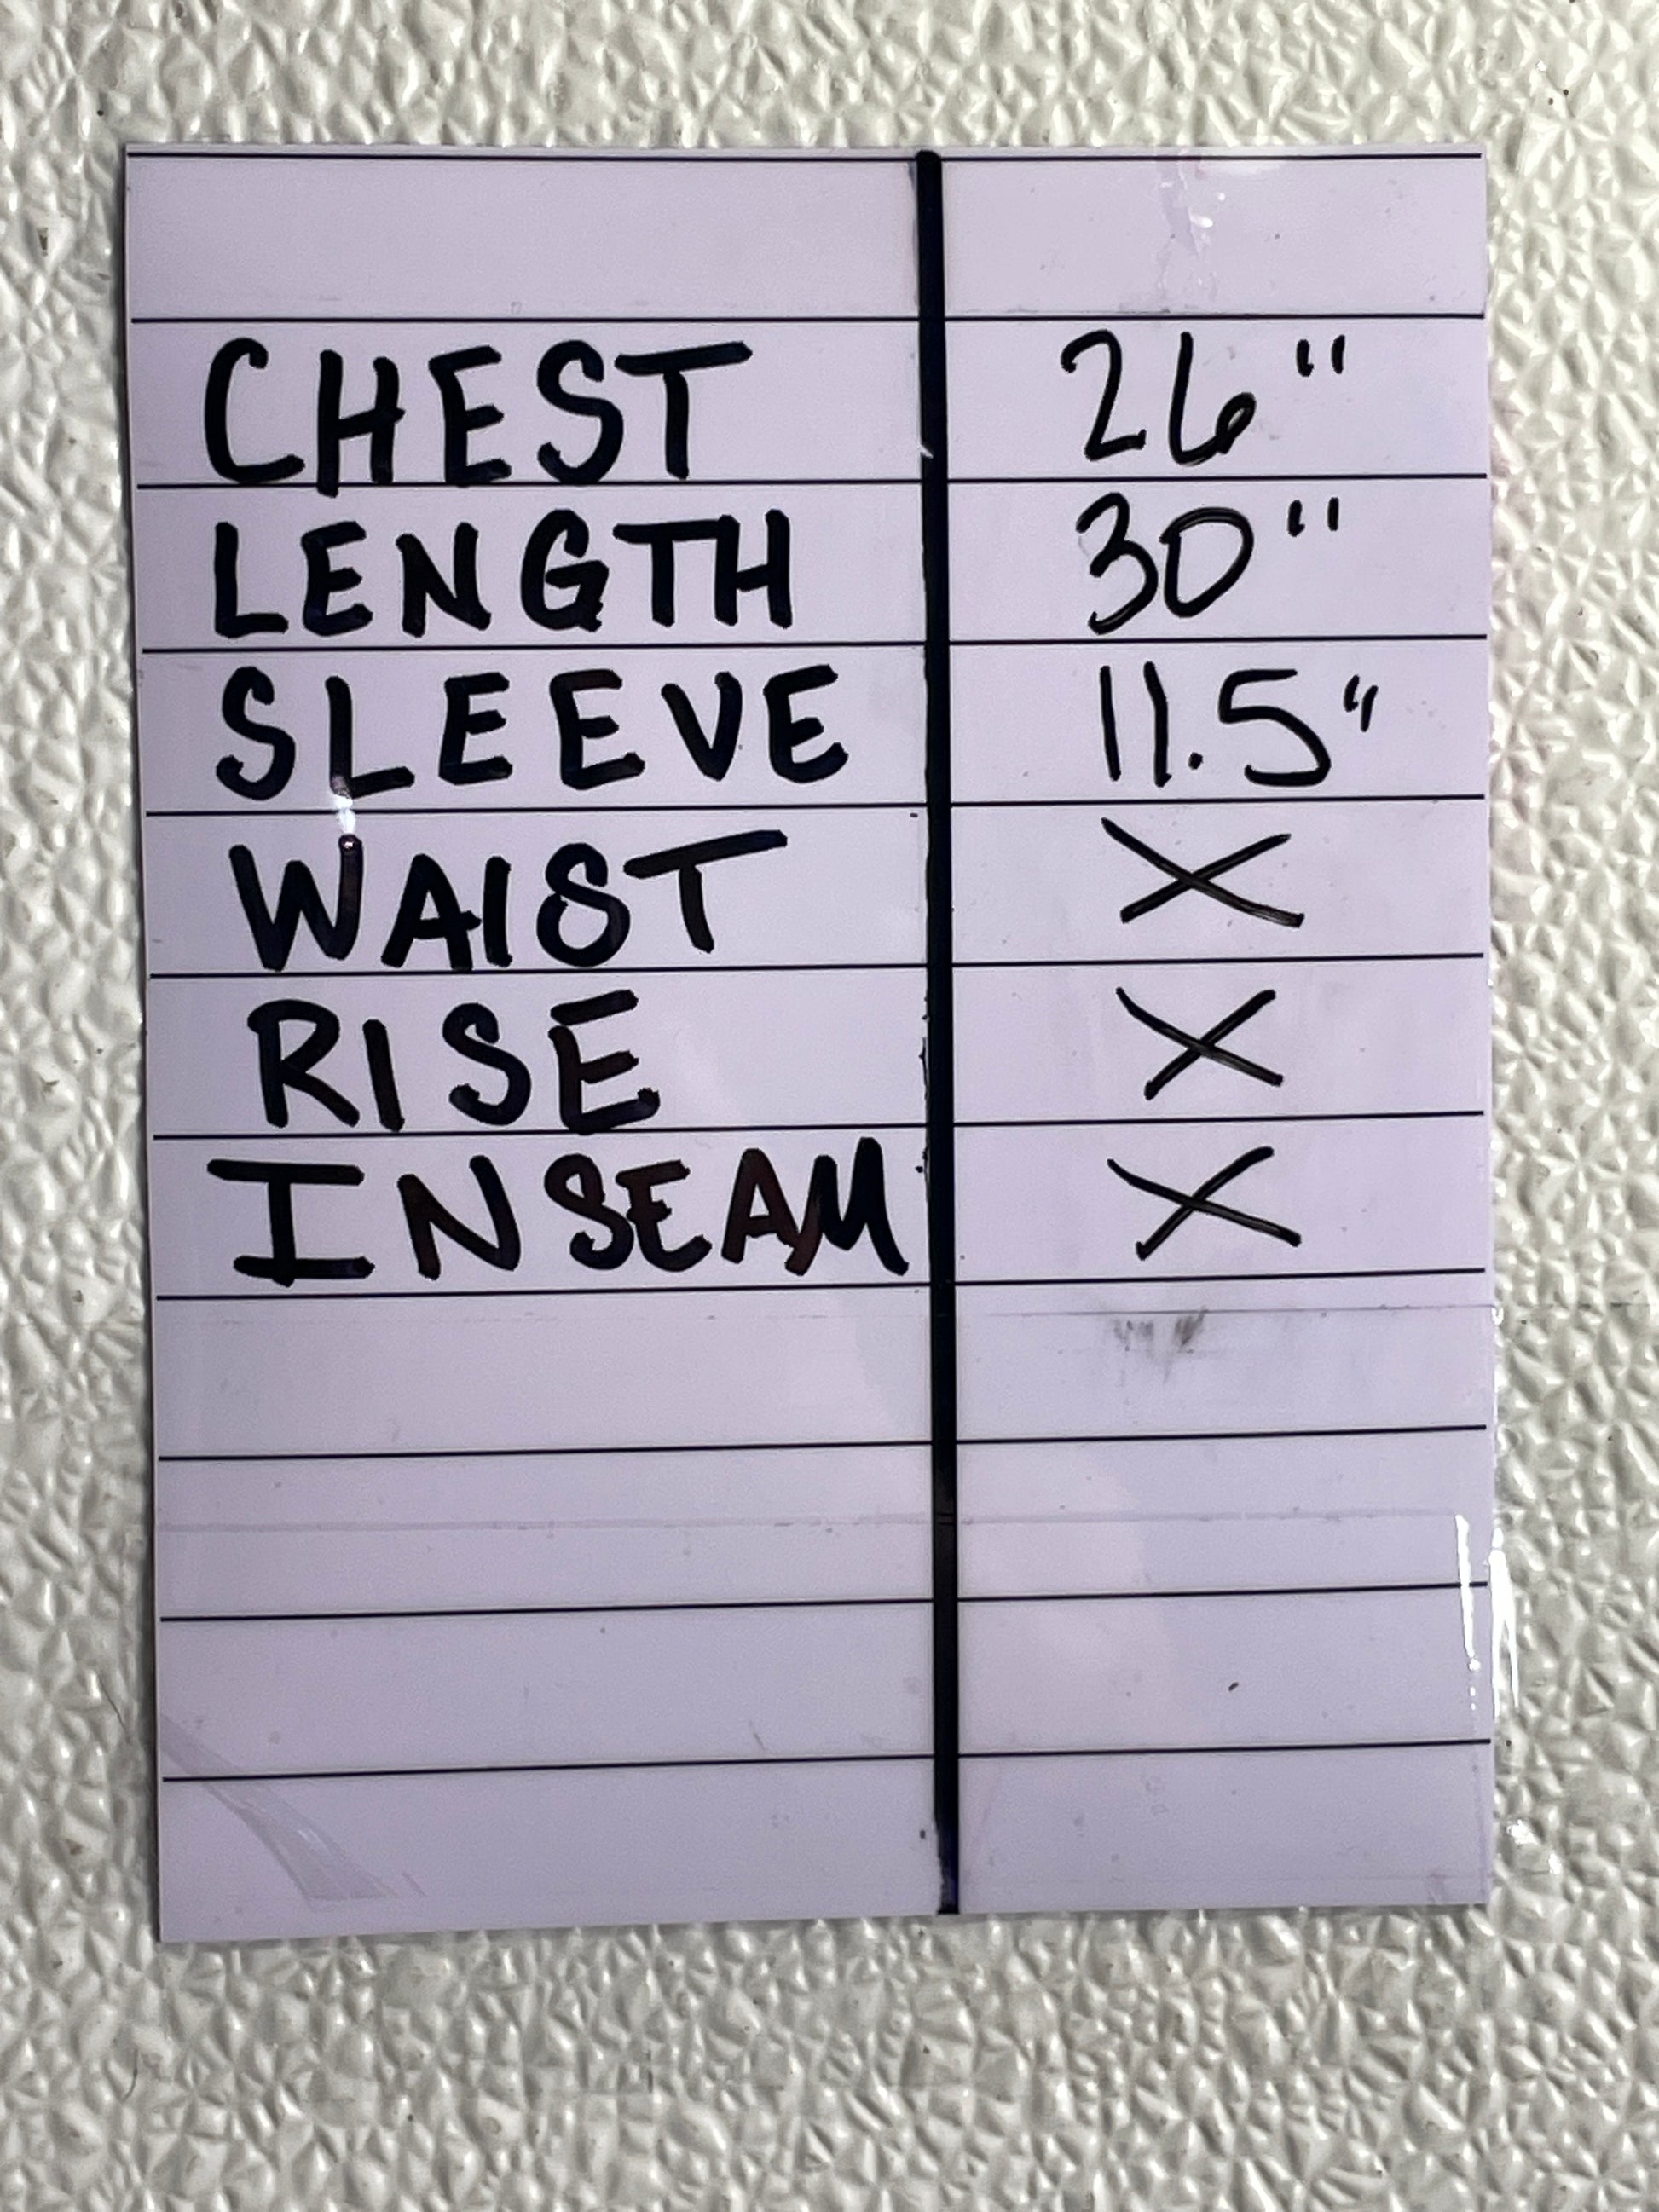 CHEST 26"
LENGTH 30"
SLEEVE 11.5"
WAIST X
RISE X
INSEAM X